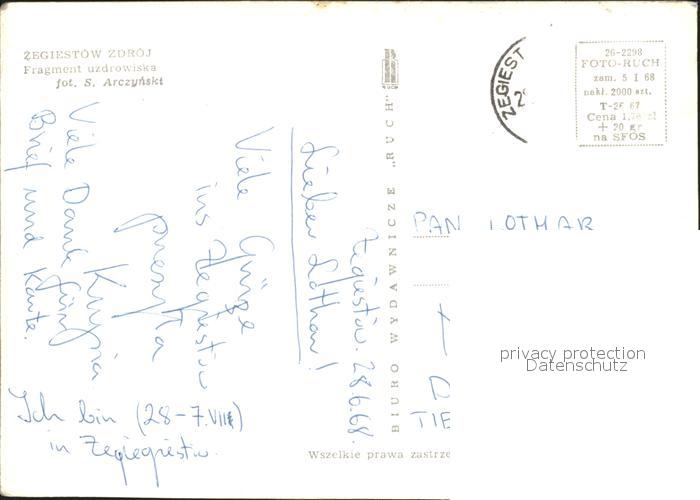 ŻEGIESTÓW ZDRÓJ
Fragment uzdrowiska
fot. S. Arczyński
Żegiestów. 28.6.68.
Lieber Lothar!
Viele Grüsse
ins Żegiestów
przesyła
Krysia
Viele Dank für
Brief und Karte.
Ich bin (28-7.VIII)
in Żegiestów.
BIURO WYDAWNICZE „RUCH"
Wszelkie prawa zastrze
ŻEGIEST
26-2298
FOTO-RUCH
zam. 5 I 68
nakł. 2000 szt.
T-26 67
Cena 1,70 zł
+ 20 gr
na SFOS
PAN LOTHAR
TIE
privacy protection
Datenschutz